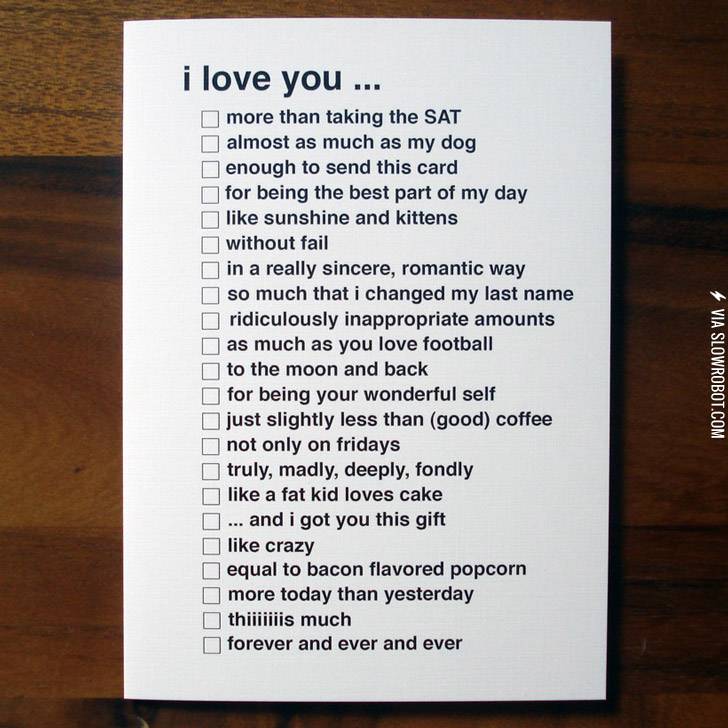 i love you ...
more than taking the SAT
almost as much as my dog
enough to send this card
for being the best part of my day
like sunshine and kittens
without fail
in a really sincere, romantic way
so much that i changed my last name
ridiculously inappropriate amounts
as much as you love football
to the moon and back
for being your wonderful self
just slightly less than (good) coffee
not only on fridays
truly, madly, deeply, fondly
like a fat kid loves cake
... and i got you this gift
like crazy
equal to bacon flavored popcorn
more today than yesterday
thiiiiiiis much
forever and ever and ever
VIA SLOWROBOT.COM